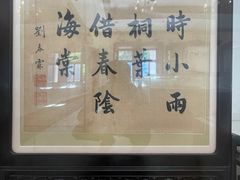 時小雨
桐葉
借春陰
海棠
劉春霖